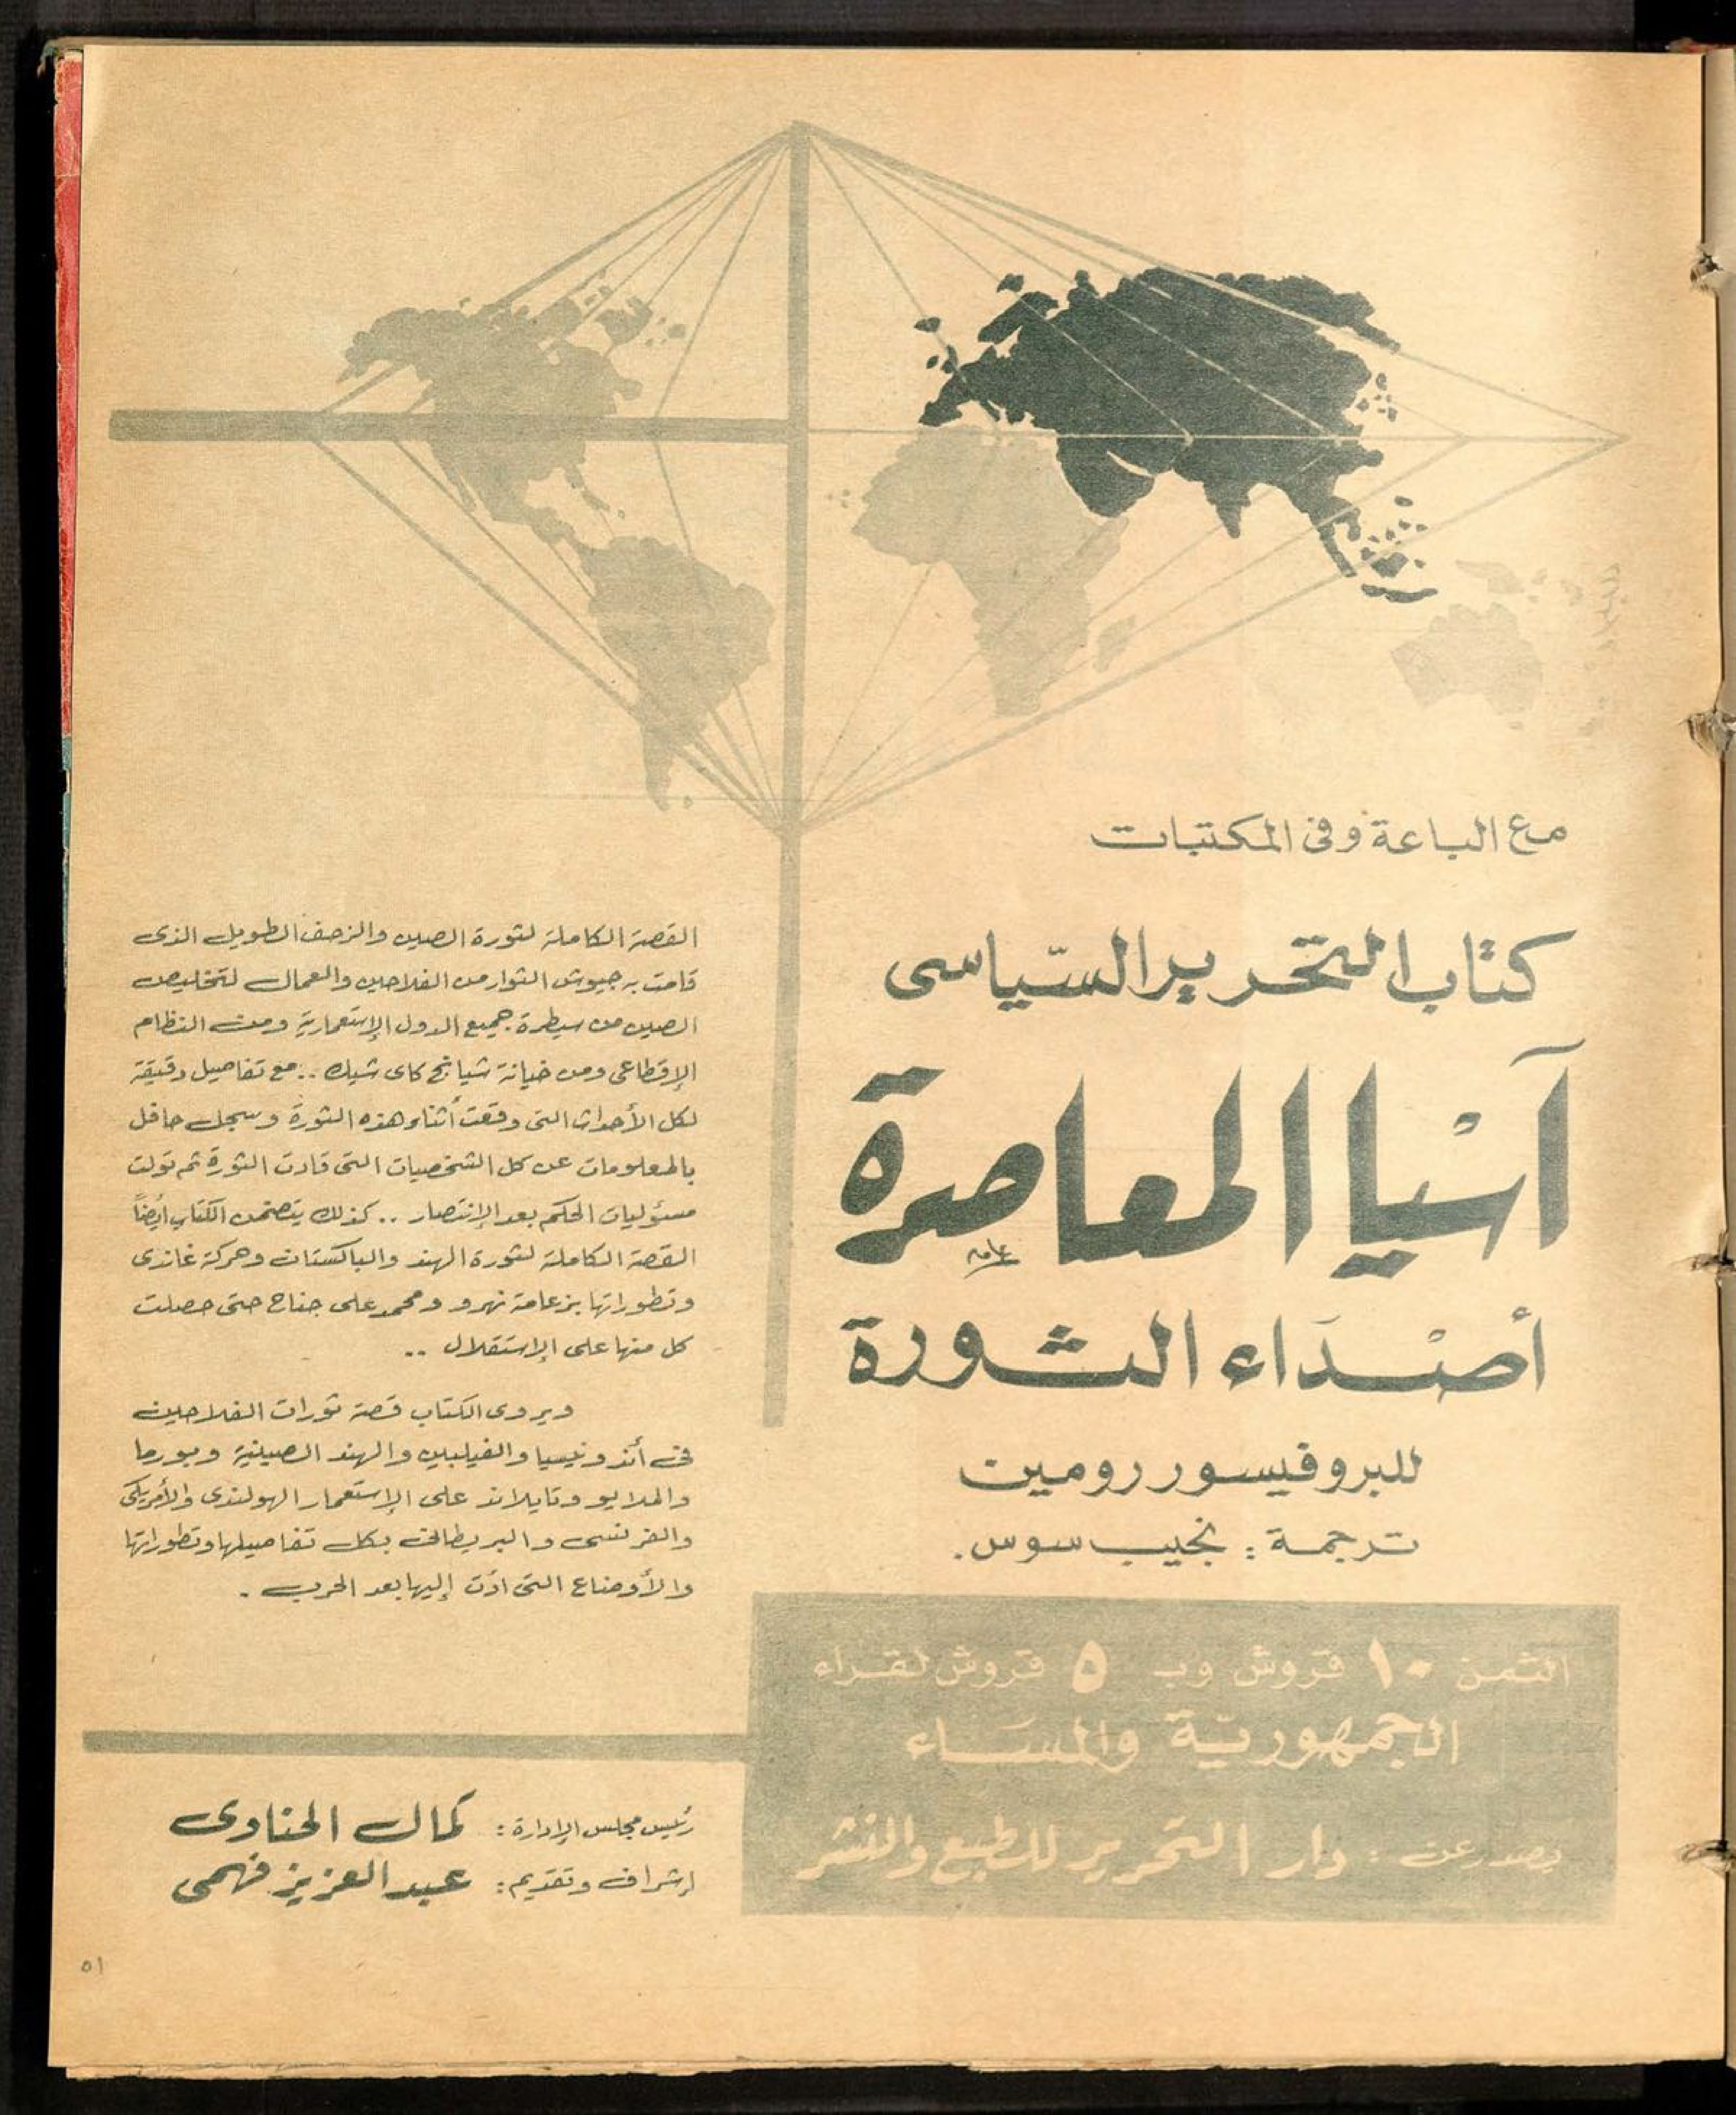 مع الباعة وفى المكتبات
كتاب التحرير السّياسى
آسْيا المعاصرة
أصْدَاء الثورة
للبروفيسور رومين
ترجمة : نجيب سوس .
الثمن ١٠ قروش وب ٥ قروش لقراء
الجمهوريّة والمسَاء
يصدر عن : دار التحرير للطبع والنشر
القصة الكاملة لثورة الصين والزحف الطويل الذى
قامت به جيوش الثوار من الفلاحين والعمال لتخليص
الصين من سيطرة جميع الدول الإستعمارية ومن النظام
الإقطاعى ومن خيانة شيانج كاى شيك .. مع تفاصيل دقيقة
لكل الأحداث التى وقعت أثناء هذه الثورة وسجل حافل
بالمعلومات عن كل الشخصيات التى قادت الثورة ثم تولت
مسئوليات الحكم بعد الإنتصار .. كذلك يتضمن الكتاب أيضاً
القصة الكاملة لثورة الهند والباكستان وحركة غاندى
وتطوراتها بزعامة نهرو ومحمد على جناح حتى حصلت
كل منها على الإستقلال ..
ويروى الكتاب قصة ثورات الفلاحين
فى أندونيسيا والفيلبين والهند الصينية وبورما
والملايو وتايلاند على الإستعمار الهولندى والأمريكى
والفرنسى والبريطانى بكل تفاصيلها وتطوراتها
والأوضاع التى ادّت إليها بعد الحرب .
رئيس مجلس الإدارة : كمال الحناوى
إشراف وتقديم : عبد العزيز فهمى
٥١